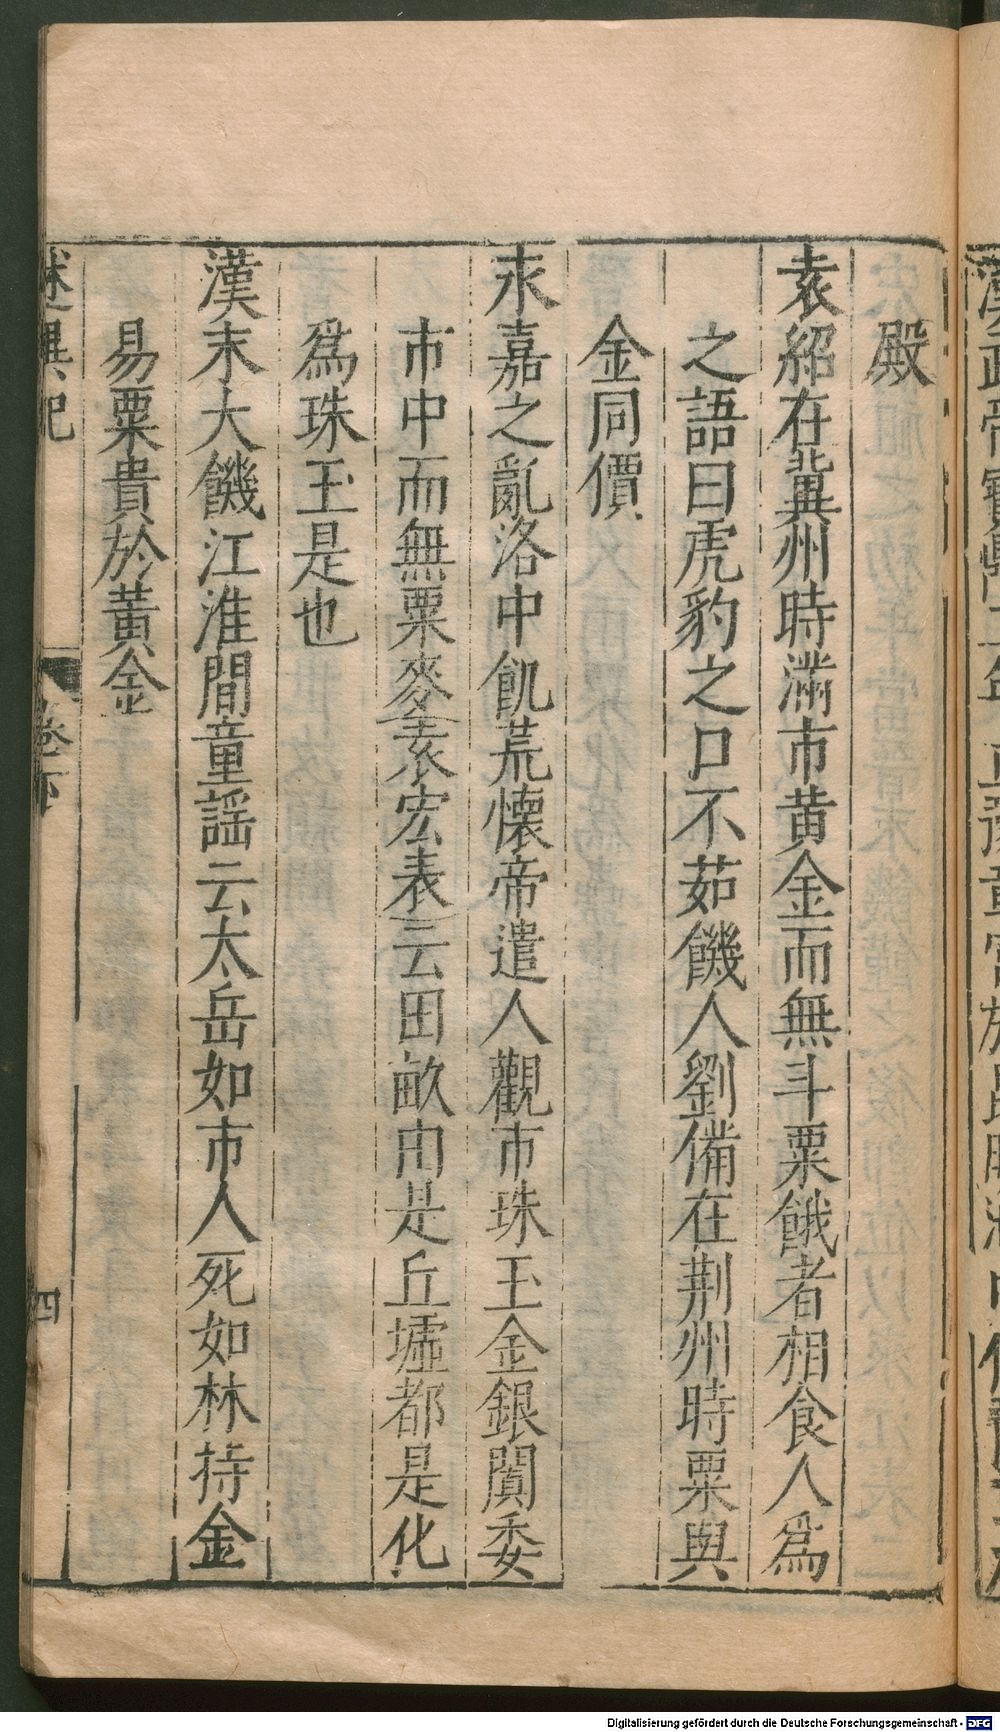 殿
袁紹在冀州時滿市黄金而無斗粟餓者相食人爲
之語曰虎豹之口不茹饑人劉備在荆州時粟與
金同價
永嘉之亂洛中飢荒懷帝遣人觀市珠玉金銀闐委
市中而無粟麥袁宏表云田畝由是丘墟都是化
爲珠玉是也
漢末大饑江淮間童謡云太岳如市人死如林持金
易粟貴於黃金
述異記 卷下 四
Digitalisierung gefördert durch die Deutsche Forschungsgemeinschaft - DFG